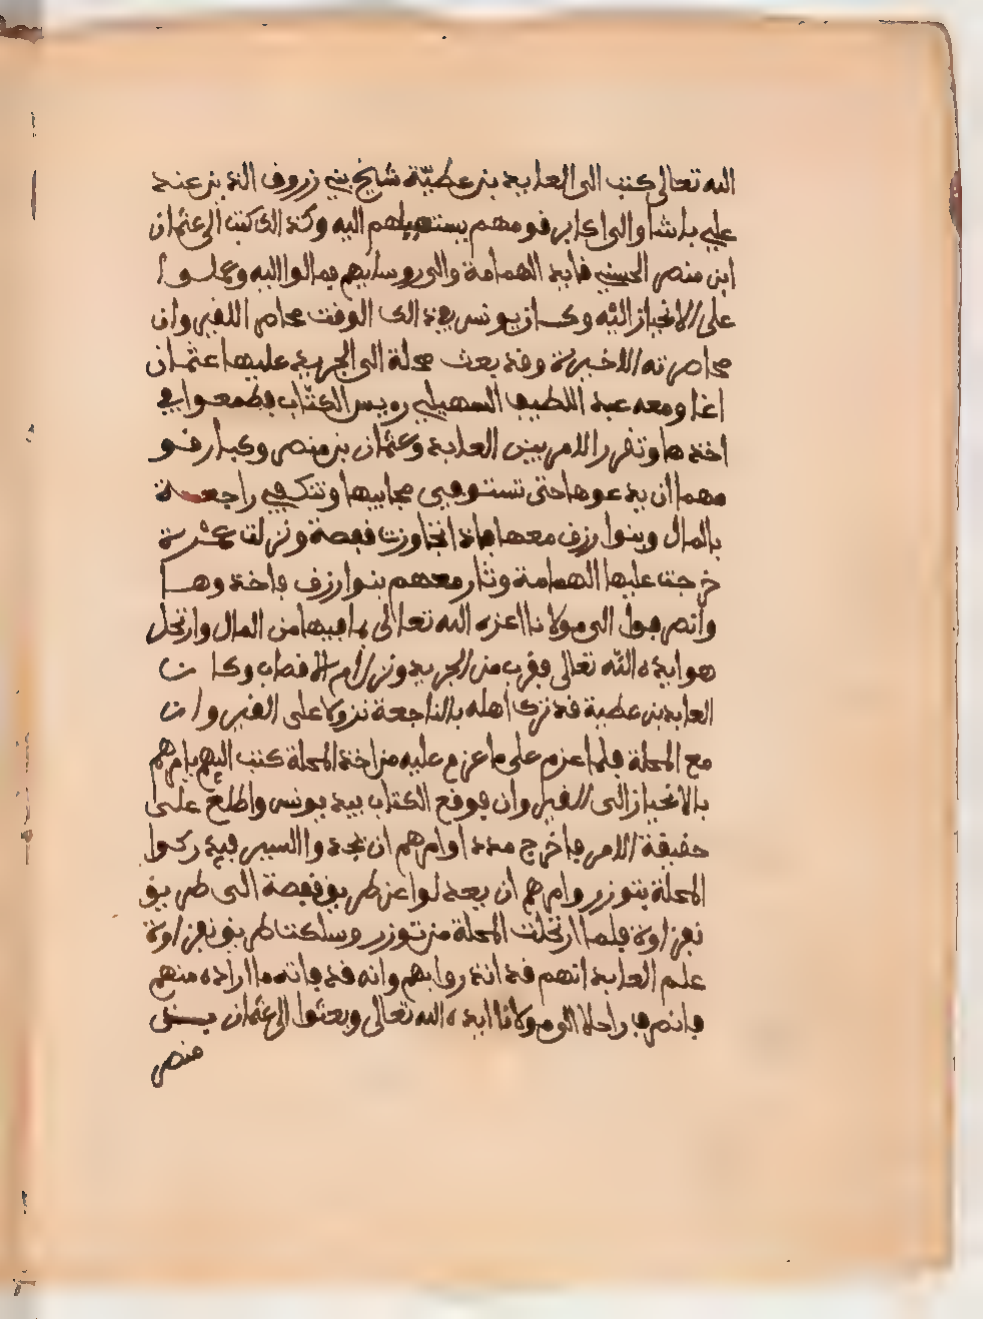 الله تعالى كتب الى العابد بن عطيّة شيخ بني زروق الذين عند
علي باشا والى اكابر قومهم يستميلهم اليه وكذالك كتب الى عثمان
ابن منصر الحسني قايد الهمامة والى روسايهم فمالوا اليه وعملوا
على الانحياز اليه وكان يونس في ذالك الوقت محاصر القيروان
محاصرته الاخيرة وقد بعث محلة الى الجريد عليها عثمان
اغا ومعه عبد اللطيف السهيلي رءيس الكتّاب فطمعوا في
اخذها وتقرر الامر بين العابد وعثمان بن منصر وكبار قو
مهما ان يدعوها حتى تستوفي مجابيها وتنكفي راجعة
بالمال وبنوا رزق معها فاذا تجاوزت قفصة ونزلت عشرة
خرجت عليها الهمامة وثار معهم بنوا رزق فاخذوها
وانصرفوا الى مولانا اعزه الله تعالى بما فيها من المال وارتحل
هو ايده الله تعالى فقرب من الجريد ونزل ام الاقصاب وكان
العابد بن عطية قد ترك اهله بالناجعة نزولا على القيروان
مع المحلة فلما عزم على ما عزم عليه من اخذ المحلة كتب اليهم يامرهم
بالانحياز الى القيروان فوقع الكتاب بيد يونس واطلع على
حقيقة الامر فاخرج مددا وامرهم ان يجدوا السير فيدركوا
المحلة بتوزر وامرهم ان يعدلوا عن طريق قفصة الى طريق
نفزاوة فلما ارتحلت المحلة من توزر وسلكت طريق نفزاوة
علم العابد انهم قد انذروا بهم وانه قد فاته ما اراده منهم
فانصرف راحلا الى مولانا ايده الله تعالى وبعثوا الى عثمان بن
منصر